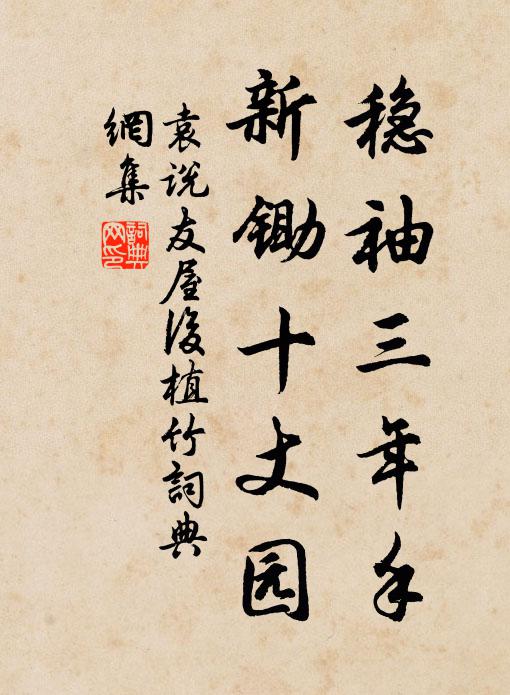 稳袖三年手
新锄十丈园
袁说友屋后植竹词典
網集
词典网印